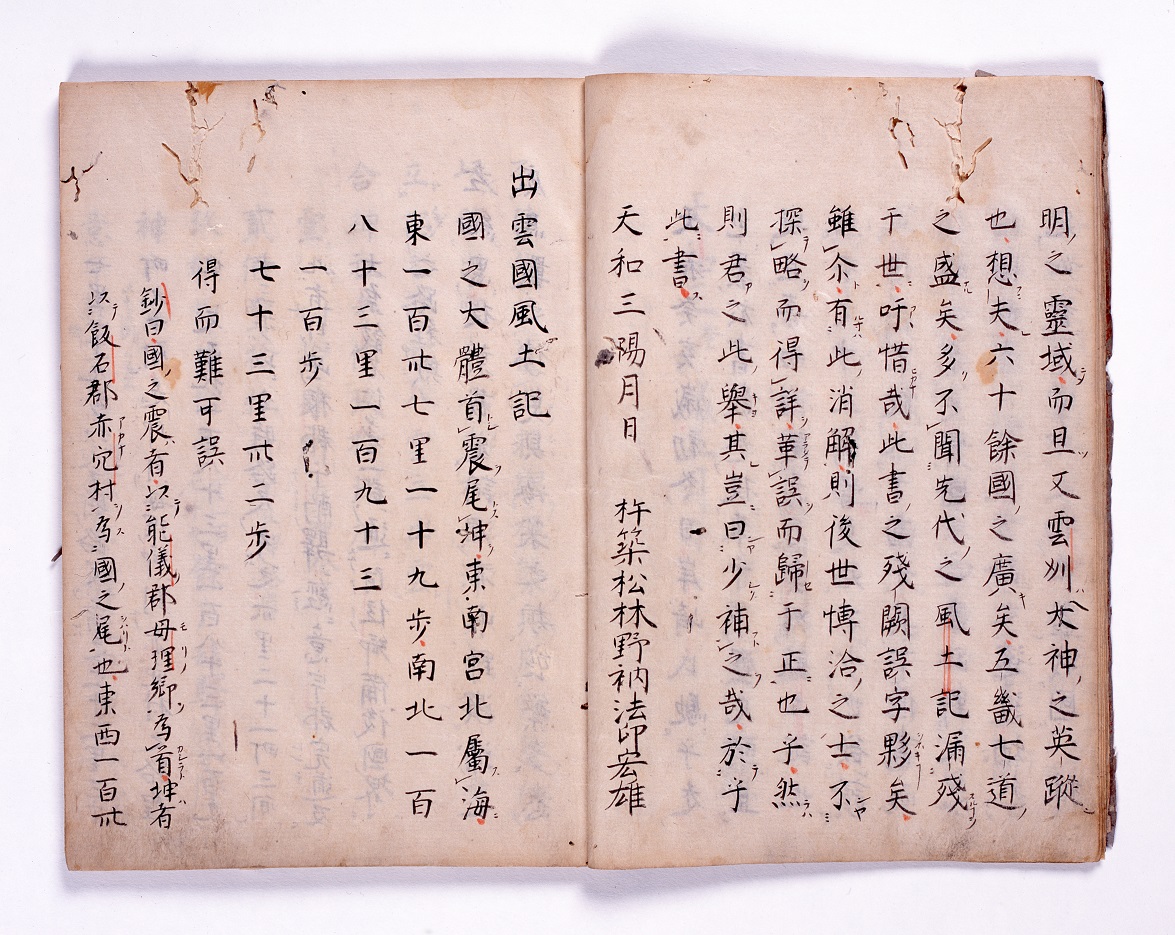 明之靈域而且又雲州女神之英蹤
也想夫六十餘國之廣矣五畿七道
之盛矣多不聞先代之風土記漏殘
于世吁惜哉此書之殘闕誤字夥矣
雖尒有此消解則後世博洽之士不
探略而得詳革誤而歸于正也乎然
則君之此舉其豈曰少補之哉於乎
此書
天和三陽月日 杵築松林野衲法印宏雄
出雲國風土記
國之大體首震尾坤東南宮北屬海
東一百卅七里一十九步南北一百
八十三里一百九十三
一百步
七十三里卅二步
得而難可誤
鈔曰國之震者以能儀郡母理鄉為首坤者
以飯石郡赤穴村為國之尾也東西一百卅